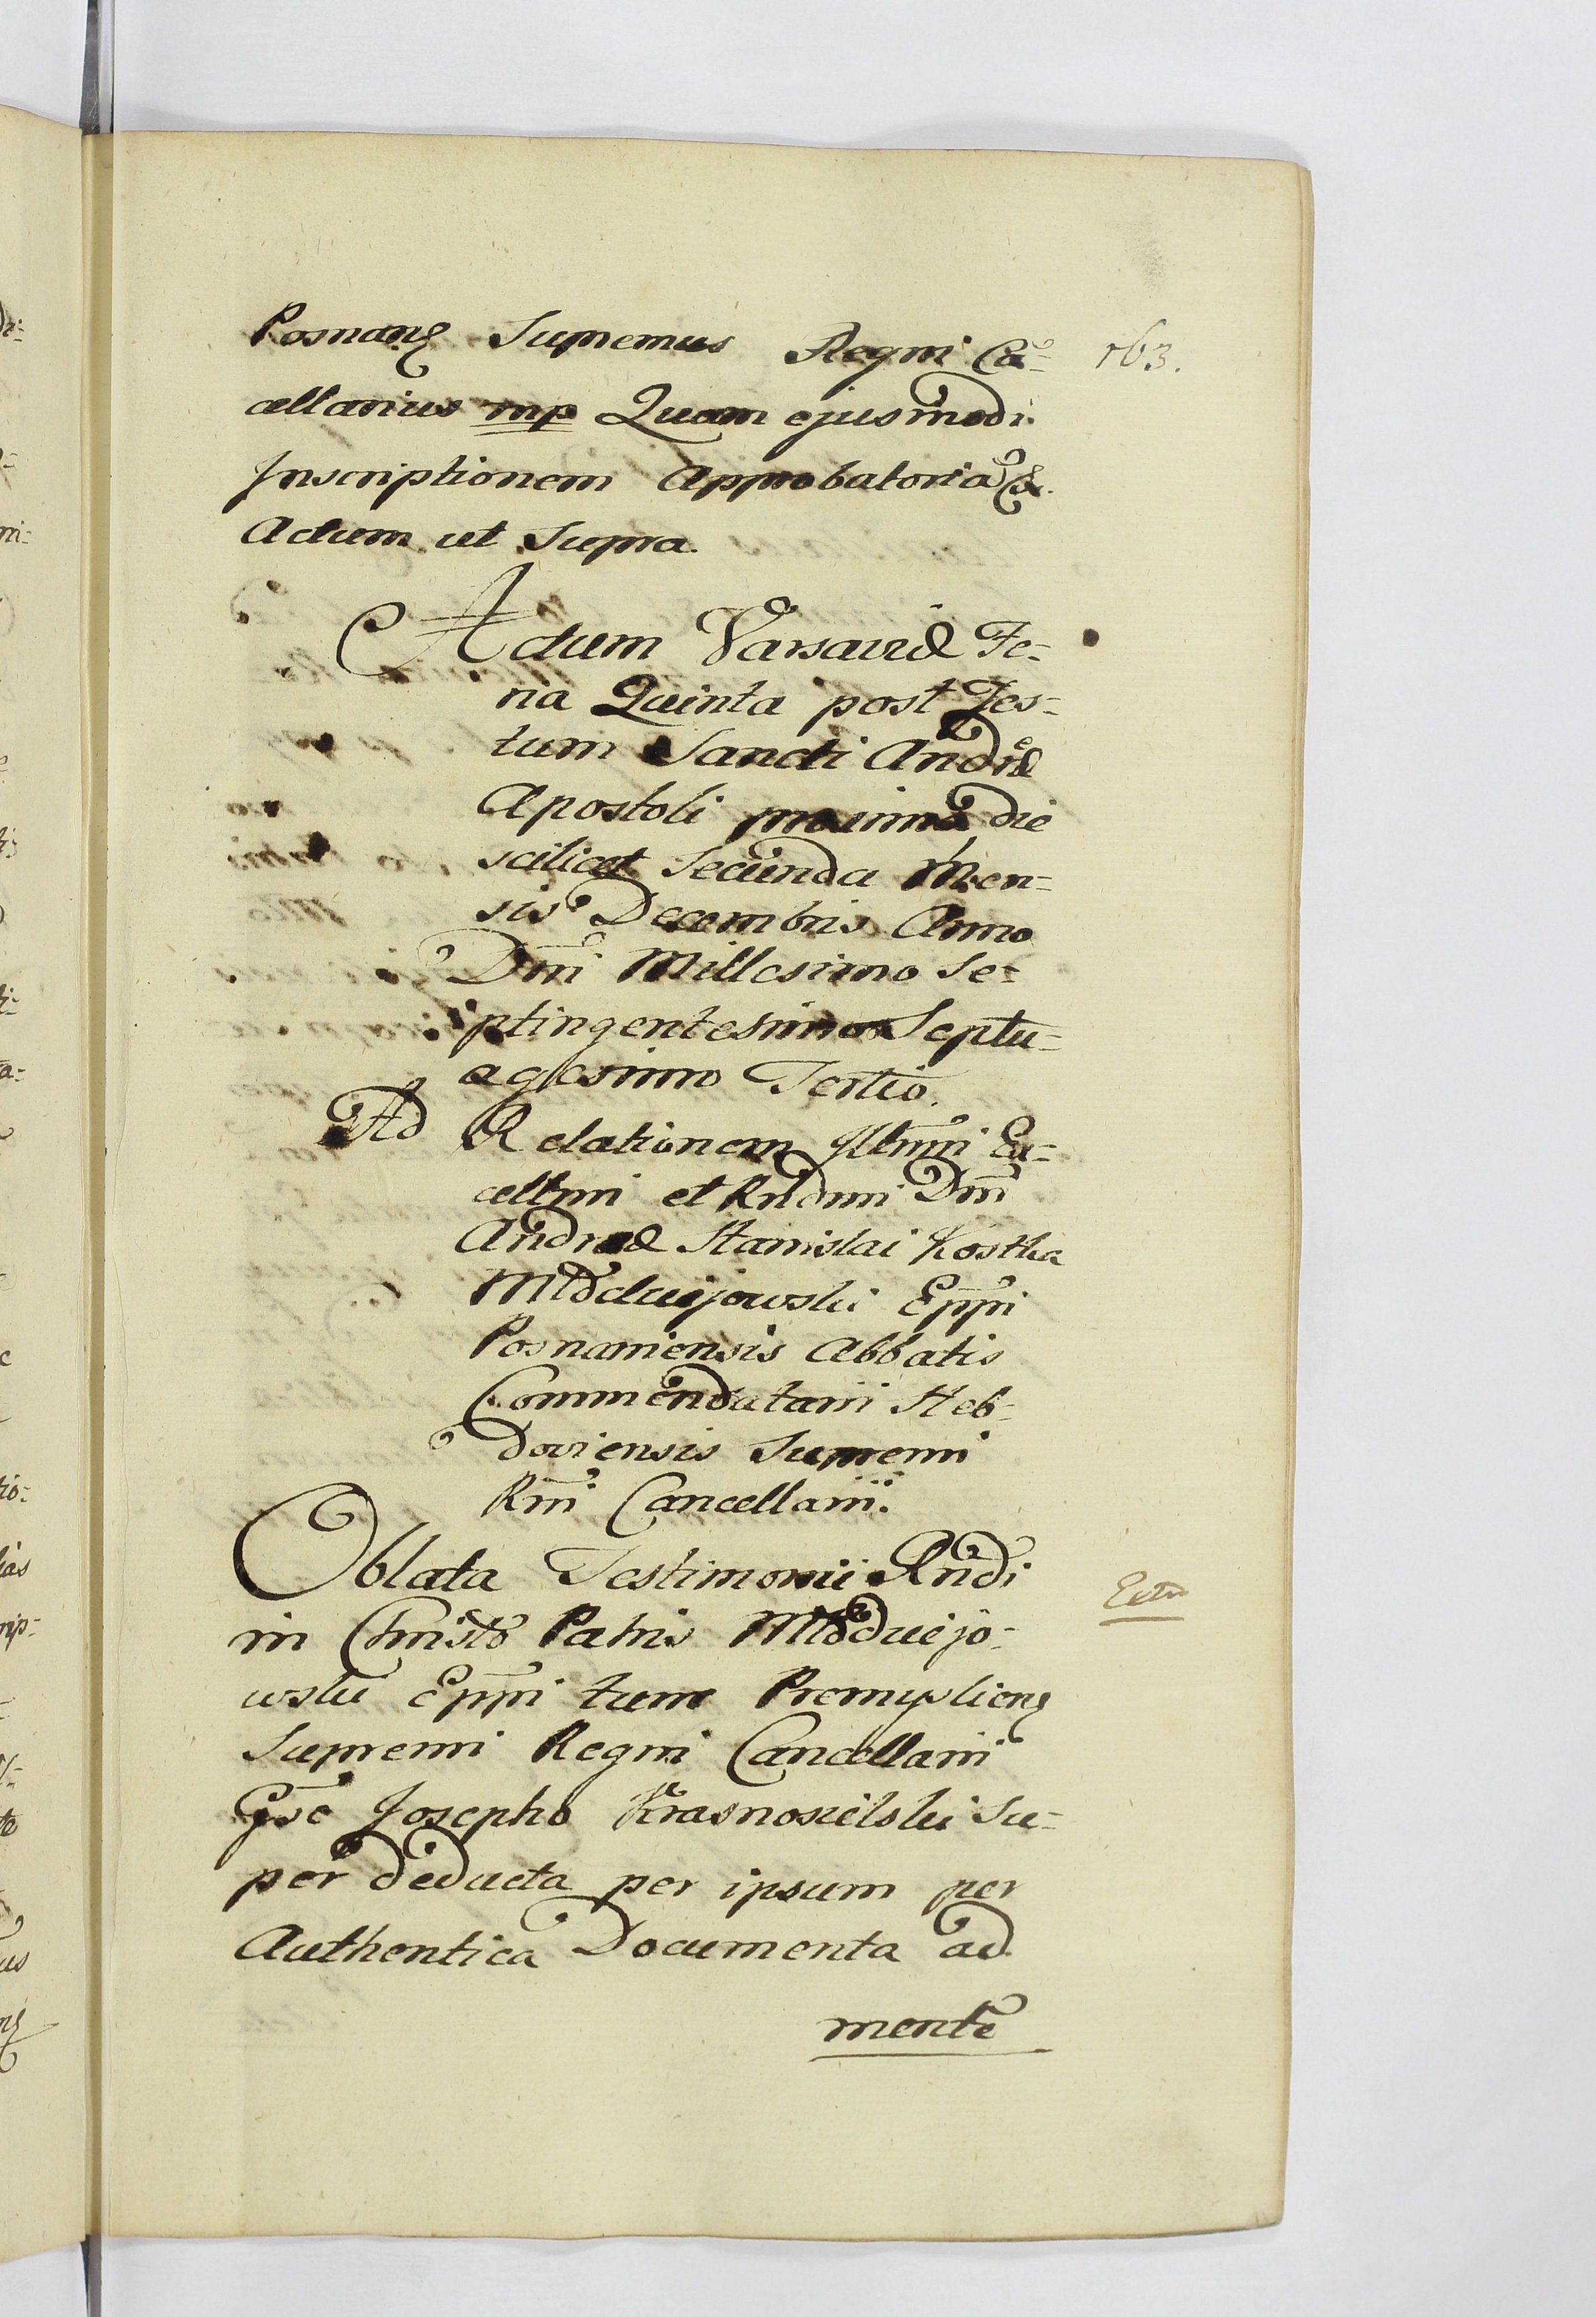 163.
Posnanẽ Supremus Regni Cã=
cellarius mp Quam ejusmodi
Inscriptionem Approbatoriã &.
Actum ut Supra.
Actum Varsaviæ Fe=
ria Quinta post Fes=
tum Sancti Andreæ
Apostoli proxima die
scilicet Secunda Men=
sis Decembris Anno
Dni Millesimo Se=
ptingentesimo Septu=
agesimo Tertio.
Ad Relationem Illmi Ex=
cellmi et Rndmi Dni
Andreæ Stanislai Kostka
Młodziejowski Eppi
Posnaniensis Abbatis
Commendatarii Heb=
doviensis Supremi
Rni Cancellarii.
Oblata Testimonii Rndi
in Christo Patris Młodziejo=
wski Eppi tum Premyslienẽ
Supremi Regni Cancellarii
Gso Josepho Krasnosielski Su=
per deducta per ipsum per
Authentica Documenta ad
mentẽ